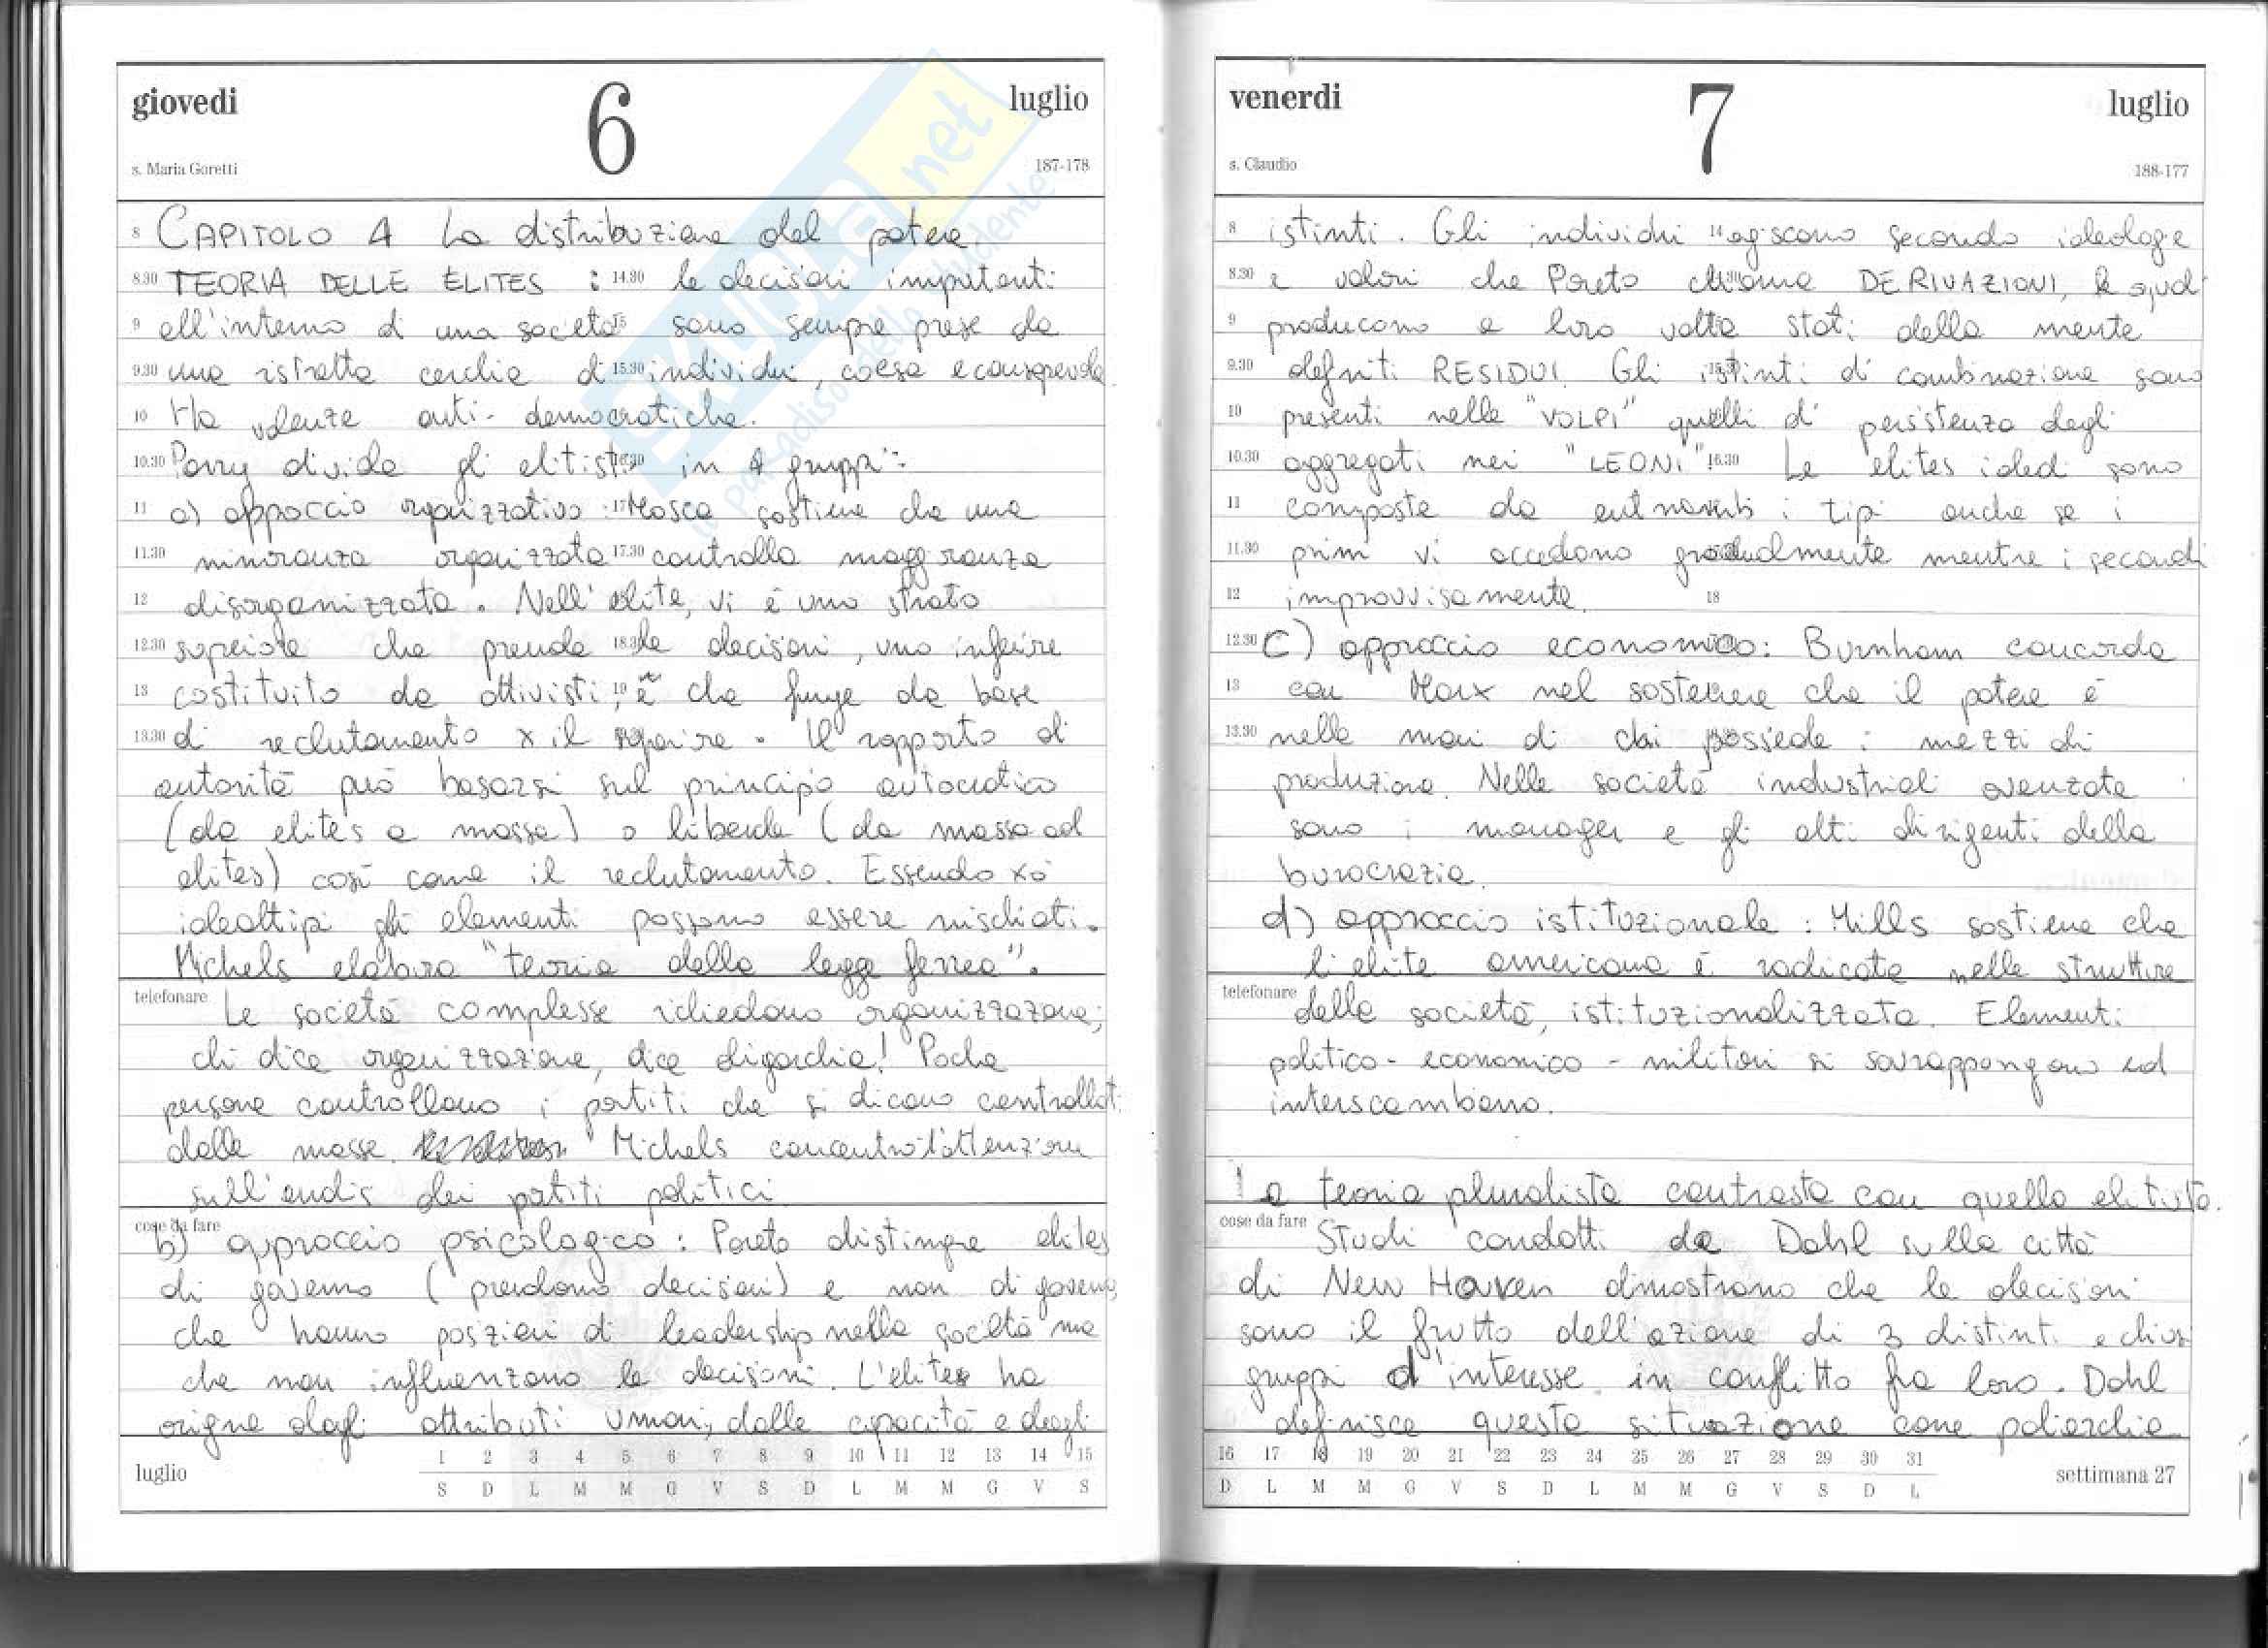 giovedì 6 luglio
s. Maria Goretti 187-178
8 CAPITOLO 4 La distribuzione del potere
8.30 TEORIA DELLE ÉLITES : 14.30 le decisioni importanti
9 all'interno di una società 15 sono sempre prese da
9.30 una ristretta cerchia di 15.30 individui, coesa e consapevole.
10 Ha valenze anti-democratiche.
10.30 Parry divide gli elitisti in 4 gruppi:
11 a) approccio organizzativo : 17 Mosca sostiene che una
11.30 minoranza organizzata 17.30 controlla maggioranza
12 disorganizzata. Nell'elite, vi è uno strato
12.30 superiore che prende 18.30 le decisioni, uno inferiore
13 costituito da attivisti, 19 e che funge da base
13.30 di reclutamento x il superiore. Il rapporto di
autorità può basarsi sul principio autocratico
(da elites a masse) o liberale (da massa ad
elites) così come il reclutamento. Essendo xò
idealtipi gli elementi possono essere mischiati.
Michels elabora "teoria della legge ferrea".
telefonare Le società complesse richiedono organizzazione;
chi dice organizzazione, dice oligarchia! Poche
persone controllano i partiti che si dicono controllati
dalle masse. Michels concentra l'attenzione
sull'analisi dei partiti politici
cose da fare
b) approccio psicologico : Pareto distingue elites
di governo (prendono decisioni) e non di governo,
che hanno posizioni di leadership nella società ma
che non influenzano le decisioni. L'elites ha
origine dagli attributi umani, dalle capacità e dagli
luglio 1 2 3 4 5 6 7 8 9 10 11 12 13 14 15
S D L M M G V S D L M M G V S
venerdì 7 luglio
s. Claudio 188-177
8 istinti. Gli individui 14 agiscono secondo ideologie
8.30 e valori che Pareto chiama DERIVAZIONI, le quali
9 producono a loro volta stati della mente
9.30 definiti RESIDUI. Gli istinti di combinazione sono
10 presenti nelle "VOLPI" quelli di persistenza degli
10.30 aggregati nei "LEONI" 16.30 Le elites ideali sono
11 composte da entrambi i tipi anche se i
11.30 primi vi accedono gradualmente mentre i secondi
12 improvvisamente. 18
12.30 c) approccio economico: Burnham concorda
13 con Marx nel sostenere che il potere è
13.30 nelle mani di chi possiede i mezzi di
produzione. Nelle società industriali avanzate
sono i manager e gli alti dirigenti della
burocrazia.
d) approccio istituzionale : Mills sostiene che
l'elite americana è radicata nelle strutture
telefonare della società, istituzionalizzata. Elementi
politico - economico - militari si sovrappongono ed
interscambiano.
La teoria pluralista contrasta con quella elitista.
cose da fare Studi condotti da Dahl sulla città
di New Haven dimostrano che le decisioni
sono il frutto dell'azione di 3 distinti e chiusi
gruppi d'interesse in conflitto fra loro. Dahl
definisce questa situazione come poliarchia
16 17 18 19 20 21 22 23 24 25 26 27 28 29 30 31 settimana 27
D L M M G V S D L M M G V S D L
skuola.net
il paradiso dello studente